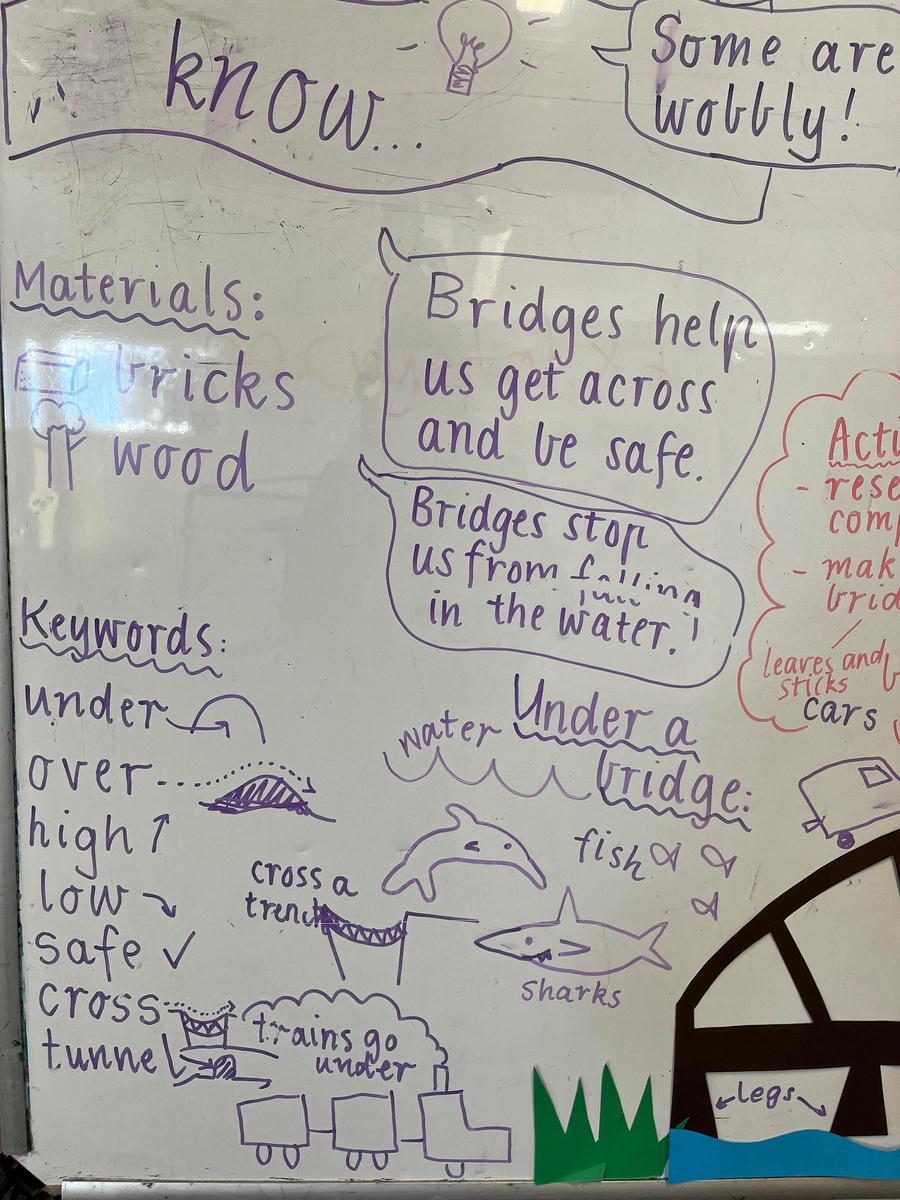 know...
Some are
wobbly!
Materials:
bricks
wood
Bridges help
us get across
and be safe.
Bridges stop
us from falling
in the water!
Keywords:
under
over
high
low
safe ✓
cross
tunnel
Under a
bridge:
water
fish
sharks
cross a
trench
trains go
under
Acti
- rese
comp
- mak
brid
leaves and
sticks
cars
legs